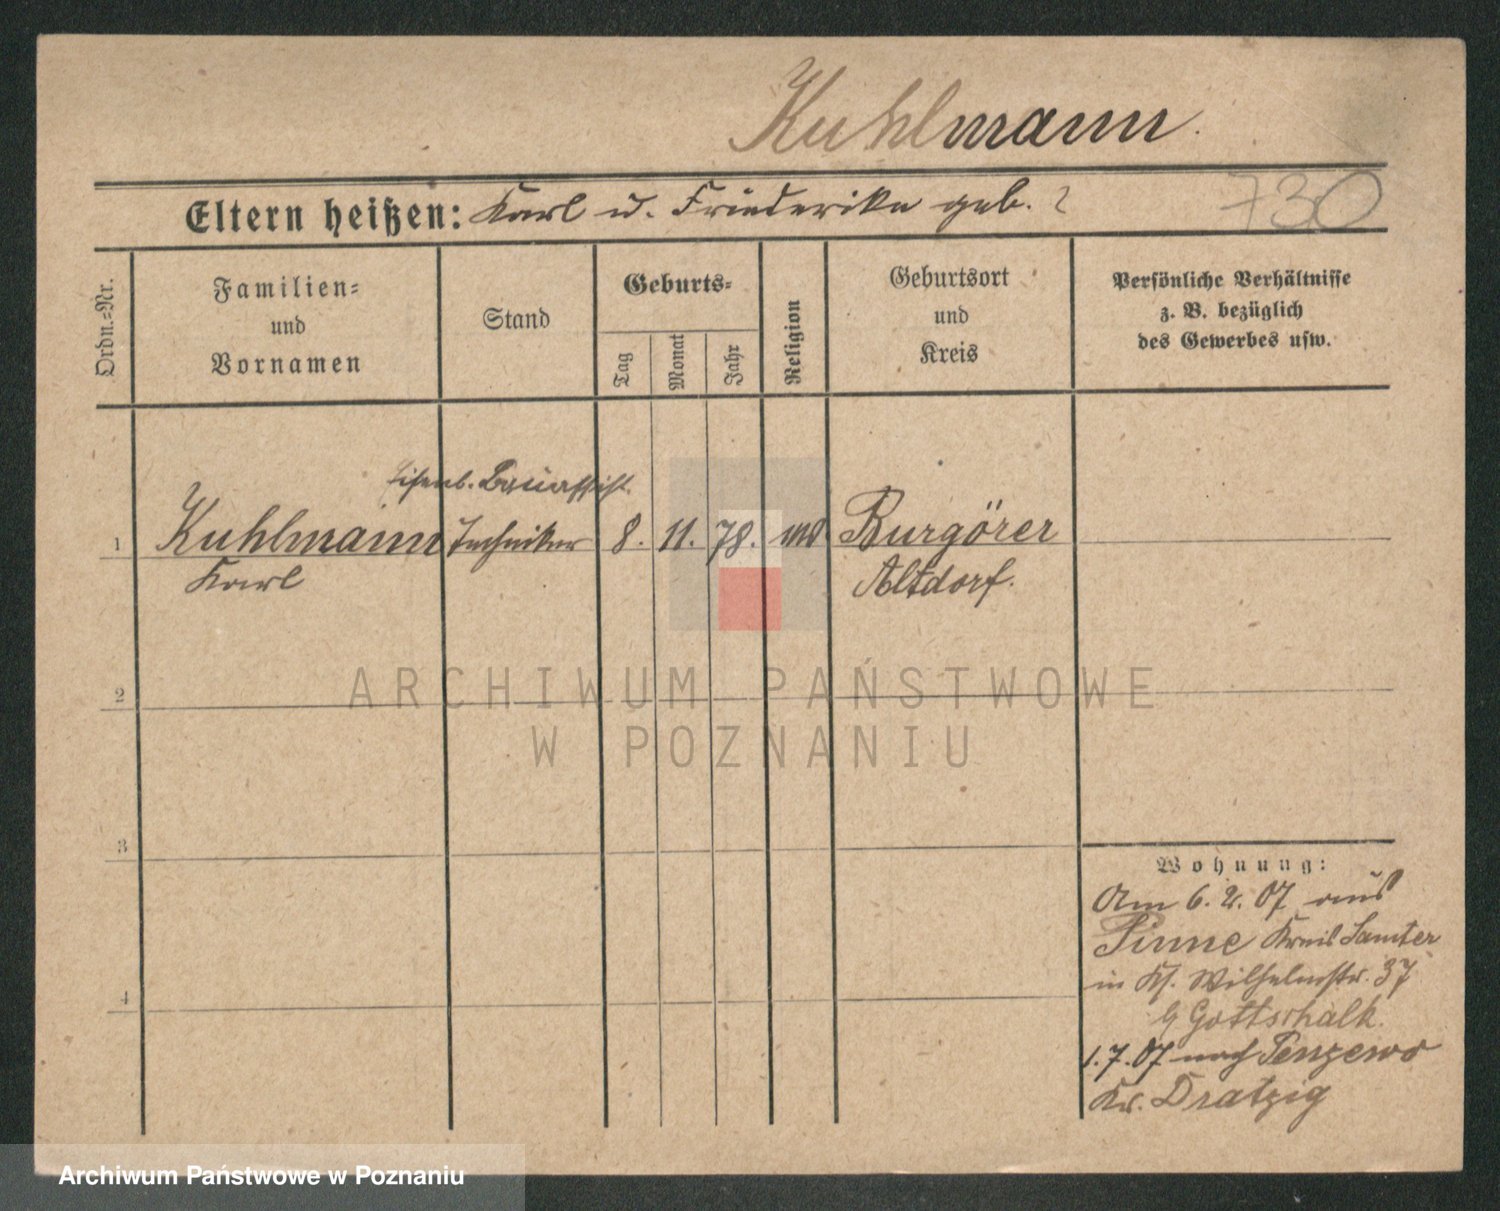 Kuhlmann.
730
Eltern heißen: Karl u. Friederike geb. ?
Ordn.=Nr.
Familien=
und
Vornamen
Stand
Geburts=
Tag
Monat
Jahr
Religion
Geburtsort
und
Kreis
Persönliche Verhältnisse
z. B. bezüglich
des Gewerbes usw.
Eisenb. Bauassist.
1 Kuhlmann Techniker 8. 11. 78. Burgörer
Karl Altdorf.
2
3
4
Wohnung:
Am 6. 2. 07 aus
Pinne Kreis Samter
in Wilhelmstr. 37
Gottschalk.
1.7.07 nach
Kr. Dratzig
ARCHIWUM PAŃSTWOWE
W POZNANIU
Archiwum Państwowe w Poznaniu